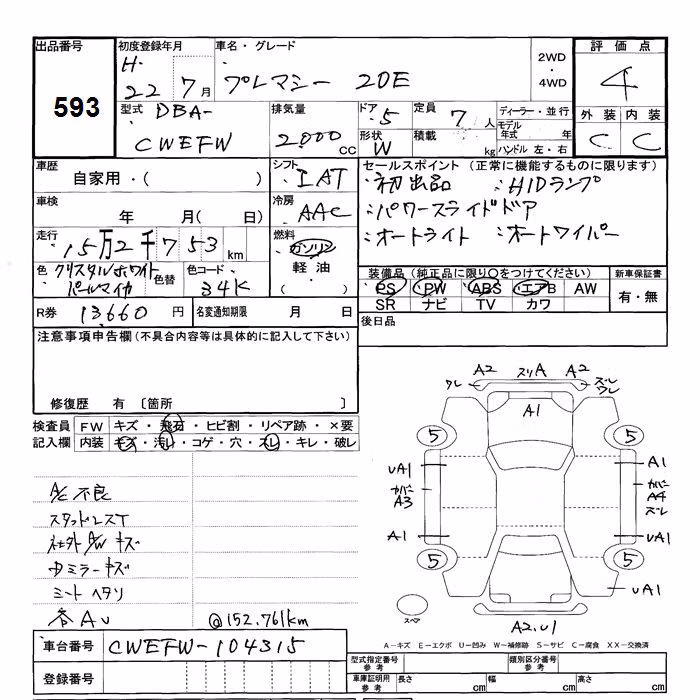 出品番号
593
初度登録年月
H.
22 7月
車名・グレード
プレマシー 20E
2WD
・
4WD
評価点
4
外装 内装
C C
型式 DBA-
CWEFW
排気量
2000 cc
ドア 5
形状 W
定員 7人
積載 kg
ディーラー・並行
モデル年式 年
ハンドル 左・右
車歴
自家用・( )
シフト
IAT
セールスポイント (正常に機能するものに限ります)
・初出品 ・HIDランプ
・パワースライドドア
・オートライト ・オートワイパー
車検
年 月( 日)
冷房
AAC
走行
15万2千753km
燃料
ガソリン
軽油・
( )
色 クリスタルホワイト
パールマイカ
色替
色コード
34K
装備品 (純正品に限り○をつけてください)
PS PW ABS エアB AW
SR ナビ TV カワ
新車保証書
有・無
R券 13660円
名変通知期限 月 日
後日品
注意事項申告欄(不具合内容等は具体的に記入して下さい)
修復歴 有 〔箇所 〕
検査員記入欄
FW キズ・飛石・ヒビ割・リペア跡・×要
内装 キズ・汚れ・コゲ・穴・スレ・キレ・破レ
A/C 不良
スタッドレスT
社外A/W キズ
ミラーキズ
シートヘタリ
各AU
@152.761km
A2 スリA A2
ワレ
ズレ
ワレ
A1
5 5
UA1 A1
カバー
A3
カバー
A4
ズレ
A1 UA1
5 5
UA1
スペア
A2.U1
A-キズ E-エクボ U-凹み W-補修跡 S-サビ C-腐食 XX-交換済
車台番号 CWEFW-104315
登録番号
型式指定番号
参考
類別区分番号
参考
車庫証明用
参考
長さ cm
幅 cm
高さ cm